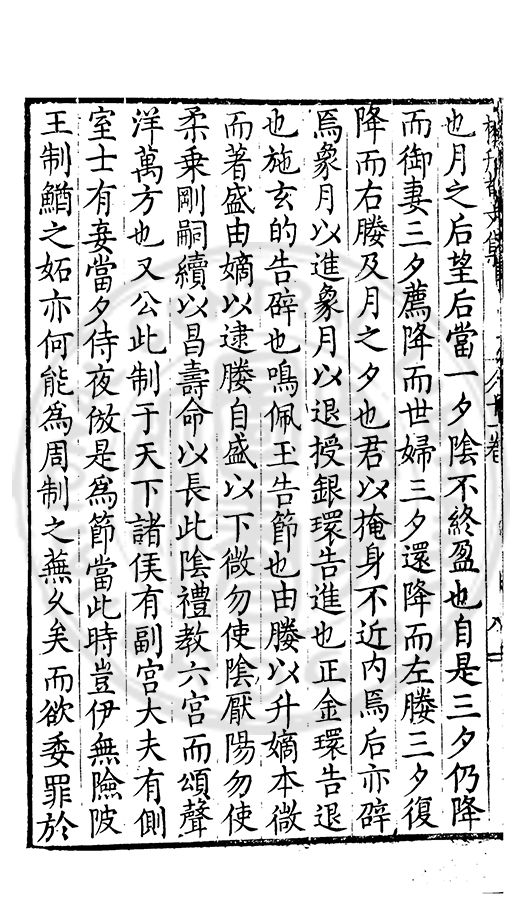 也月之后望后當一夕陰不終盈也自是三夕仍降
而御妻三夕薦降而世婦三夕還降而左媵三夕復
降而右媵及月之夕也君以掩身不近內焉后亦辟
焉象月以進象月以退授銀環告進也正金環告退
也施玄的告辟也鳴佩玉告節也由媵以升嫡本微
而著盛由嫡以逮媵自盛以下微勿使陰厭陽勿使
柔乗剛嗣續以昌壽命以長此陰禮教六宮而頌聲
洋萬方也又公此制于天下諸侯有副宮大夫有側
室士有妾當夕侍夜倣是爲節當此時豈伊無險陂
王制鰌之妬亦何能爲周制之蕪乆矣而欲委罪於